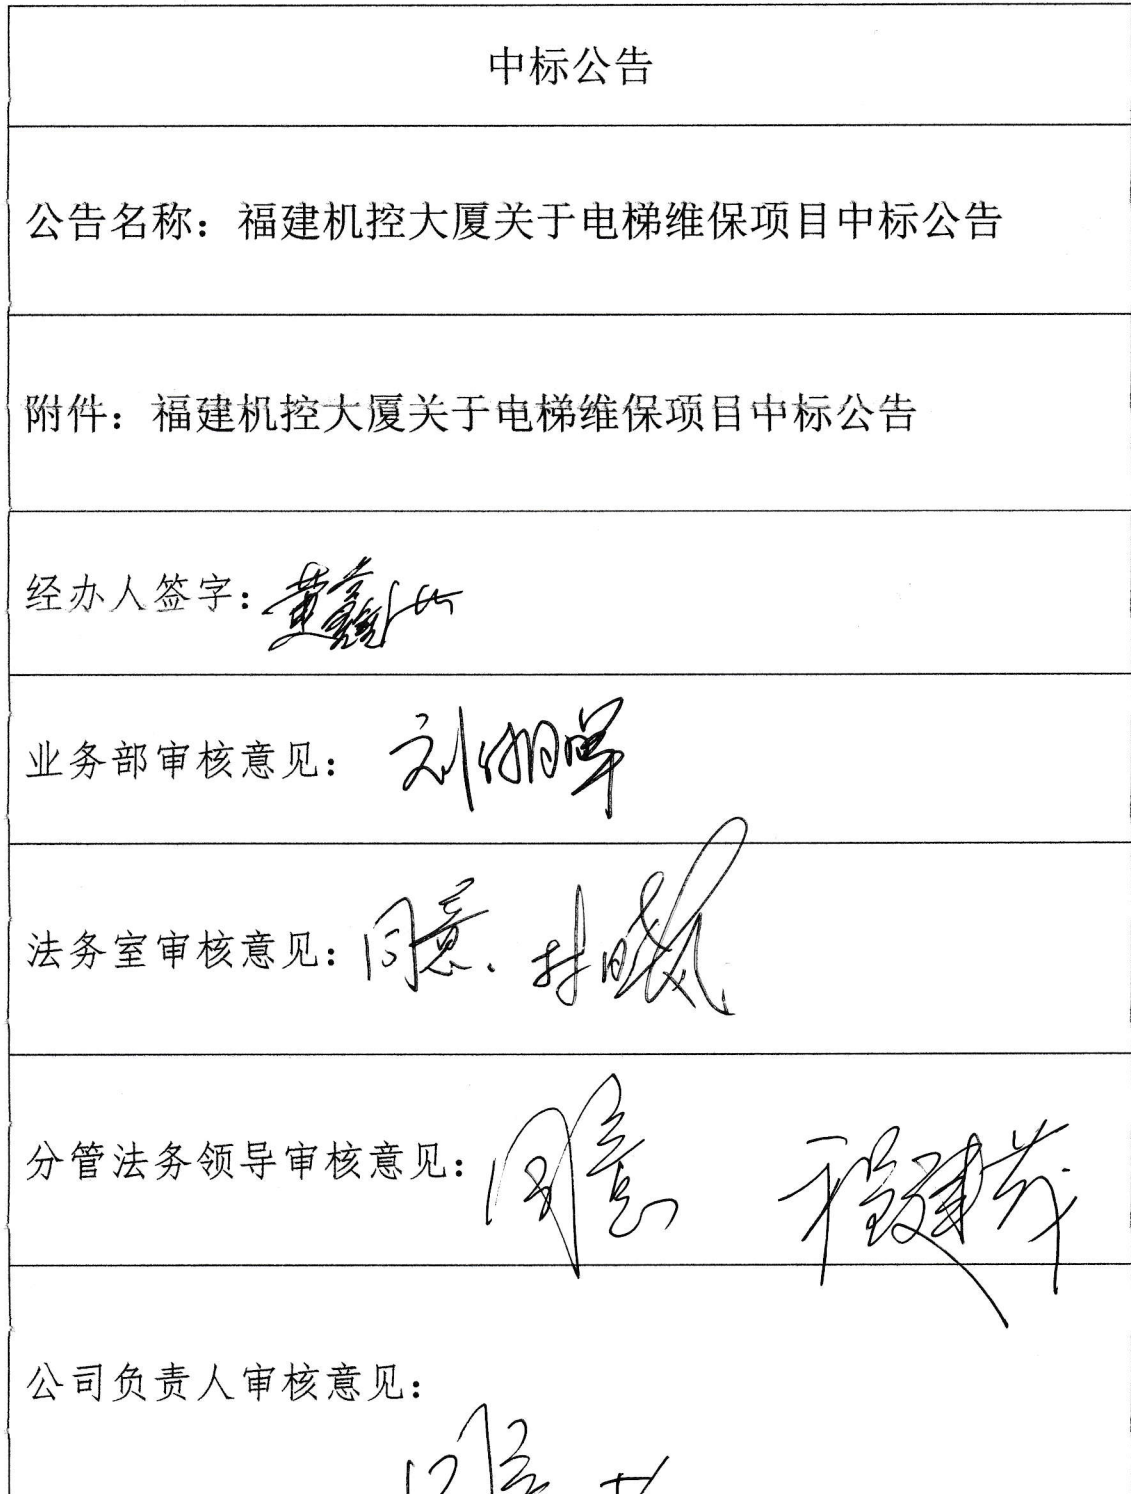 中标公告
公告名称：福建机控大厦关于电梯维保项目中标公告
附件：福建机控大厦关于电梯维保项目中标公告
经办人签字：黄
业务部审核意见：刘
法务室审核意见：同意. 林晓
分管法务领导审核意见：同意 程建茂
公司负责人审核意见：